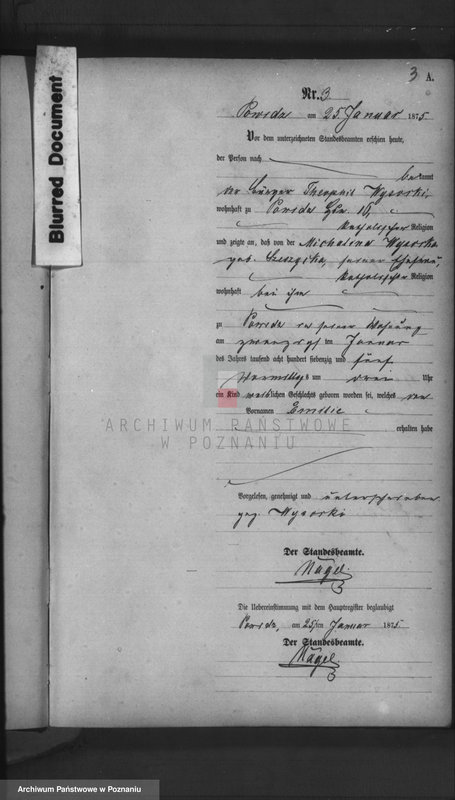 Blurred Document
3 A.
Nr. 3
Powidz am 25 Januar 1875
Vor dem unterzeichneten Standesbeamten erschien heute,
der Person nach
bekannt
der Bürger Theophil Wysocki,
wohnhaft zu Powidz
katholischer Religion
und zeigte an, daß von der Michalina Wysocka
geb. seiner Ehefrau,
katholischer Religion
wohnhaft bei ihm
zu Powidz in seiner Wohnung
am zwanzigsten Januar
des Jahres tausend acht hundert siebenzig und fünf
Vormittags um drei Uhr
ein Kind weiblichen Geschlechts geboren worden sei, welches den
Vornamen Emilie
erhalten habe
ARCHIWUM PAŃSTWOWE
W POZNANIU
Vorgelesen, genehmigt und unterschrieben
gez. Wysocki
Der Standesbeamte.
Nagel
Die Uebereinstimmung mit dem Hauptregister beglaubigt
Powidz, am 25ten Januar 1875
Der Standesbeamte.
Nagel
Archiwum Państwowe w Poznaniu